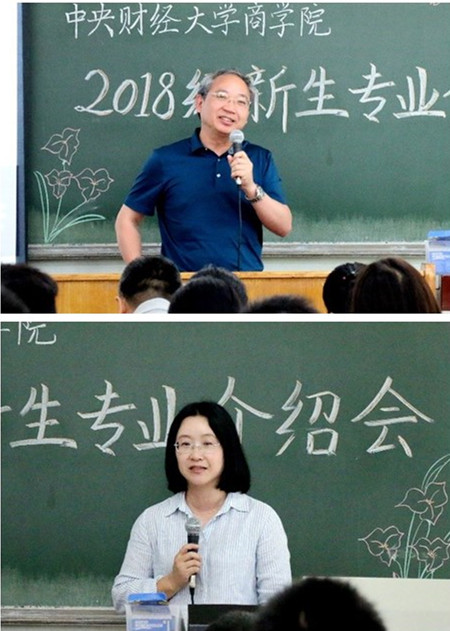 中央财经大学商学院
2018级新生专业
学院
生专业介绍会